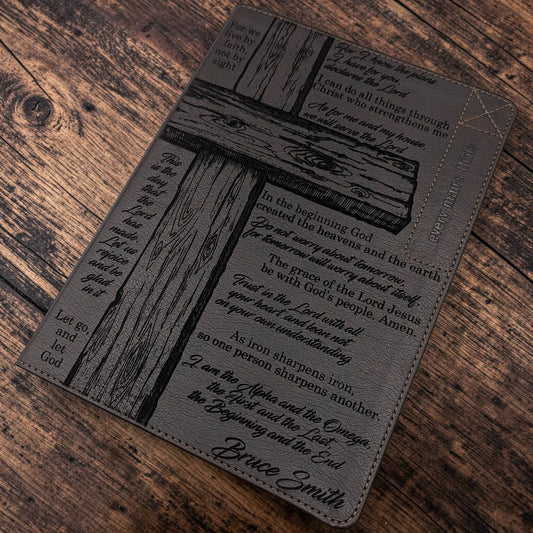 For we
live by
faith,
not by
sight
For I know the plans
I have for you
declares the Lord
I can do all things through
Christ who strengthens me
As for me and my house,
we will serve the Lord
This
is the
day
that
the
Lord
has
made.
Let us
rejoice
and be
glad
in it
In the beginning God
created the heavens and the earth
Do not worry about tomorrow,
for tomorrow will worry about itself.
The grace of the Lord Jesus
be with God's people. Amen.
Trust in the Lord with all
your heart and lean not
on your own understanding
As iron sharpens iron,
so one person sharpens another.
Let go,
and
let
God
I am the Alpha and the Omega,
the First and the Last,
the Beginning and the End
Bruce Smith
every man's Bible